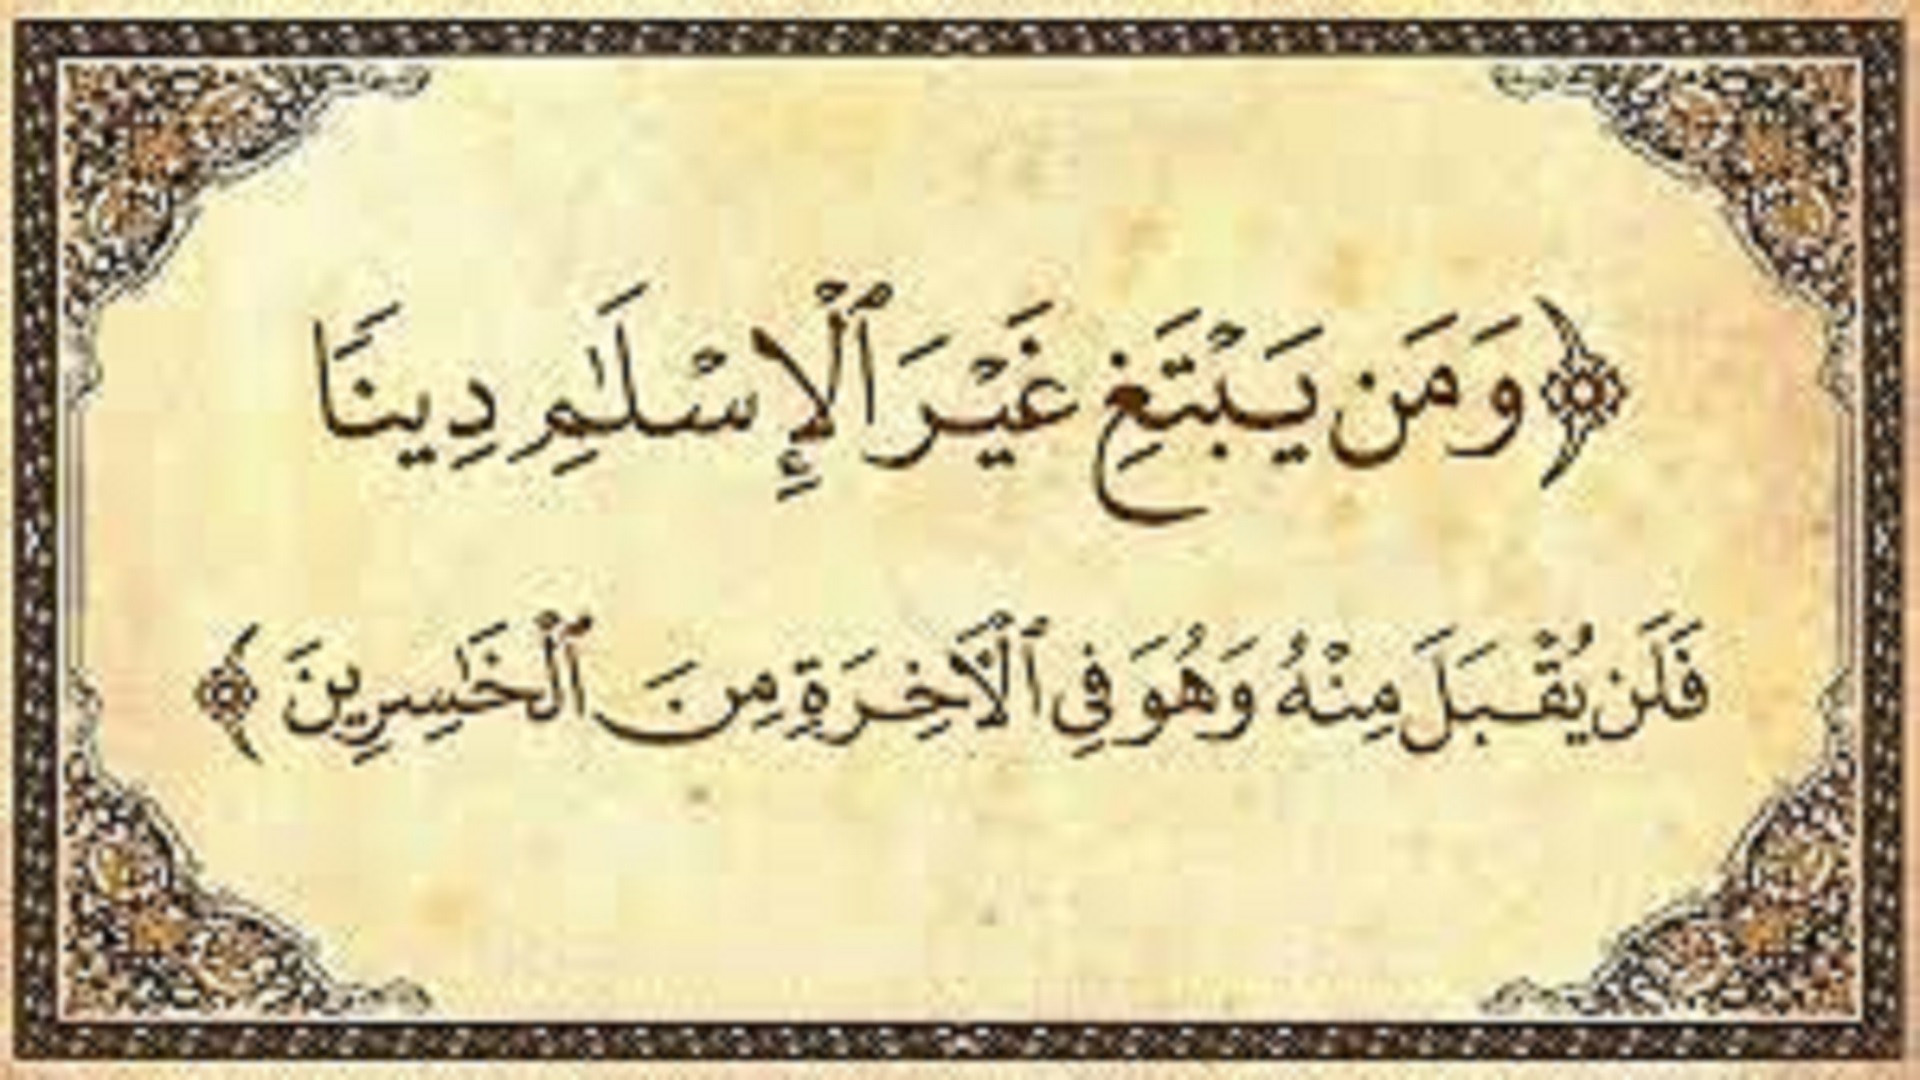 ﴿وَمَن يَبْتَغِ غَيْرَ ٱلْإِسْلَٰمِ دِينًا
فَلَن يُقْبَلَ مِنْهُ وَهُوَ فِى ٱلْأَخِرَةِ مِنَ ٱلْخَٰسِرِينَ﴾